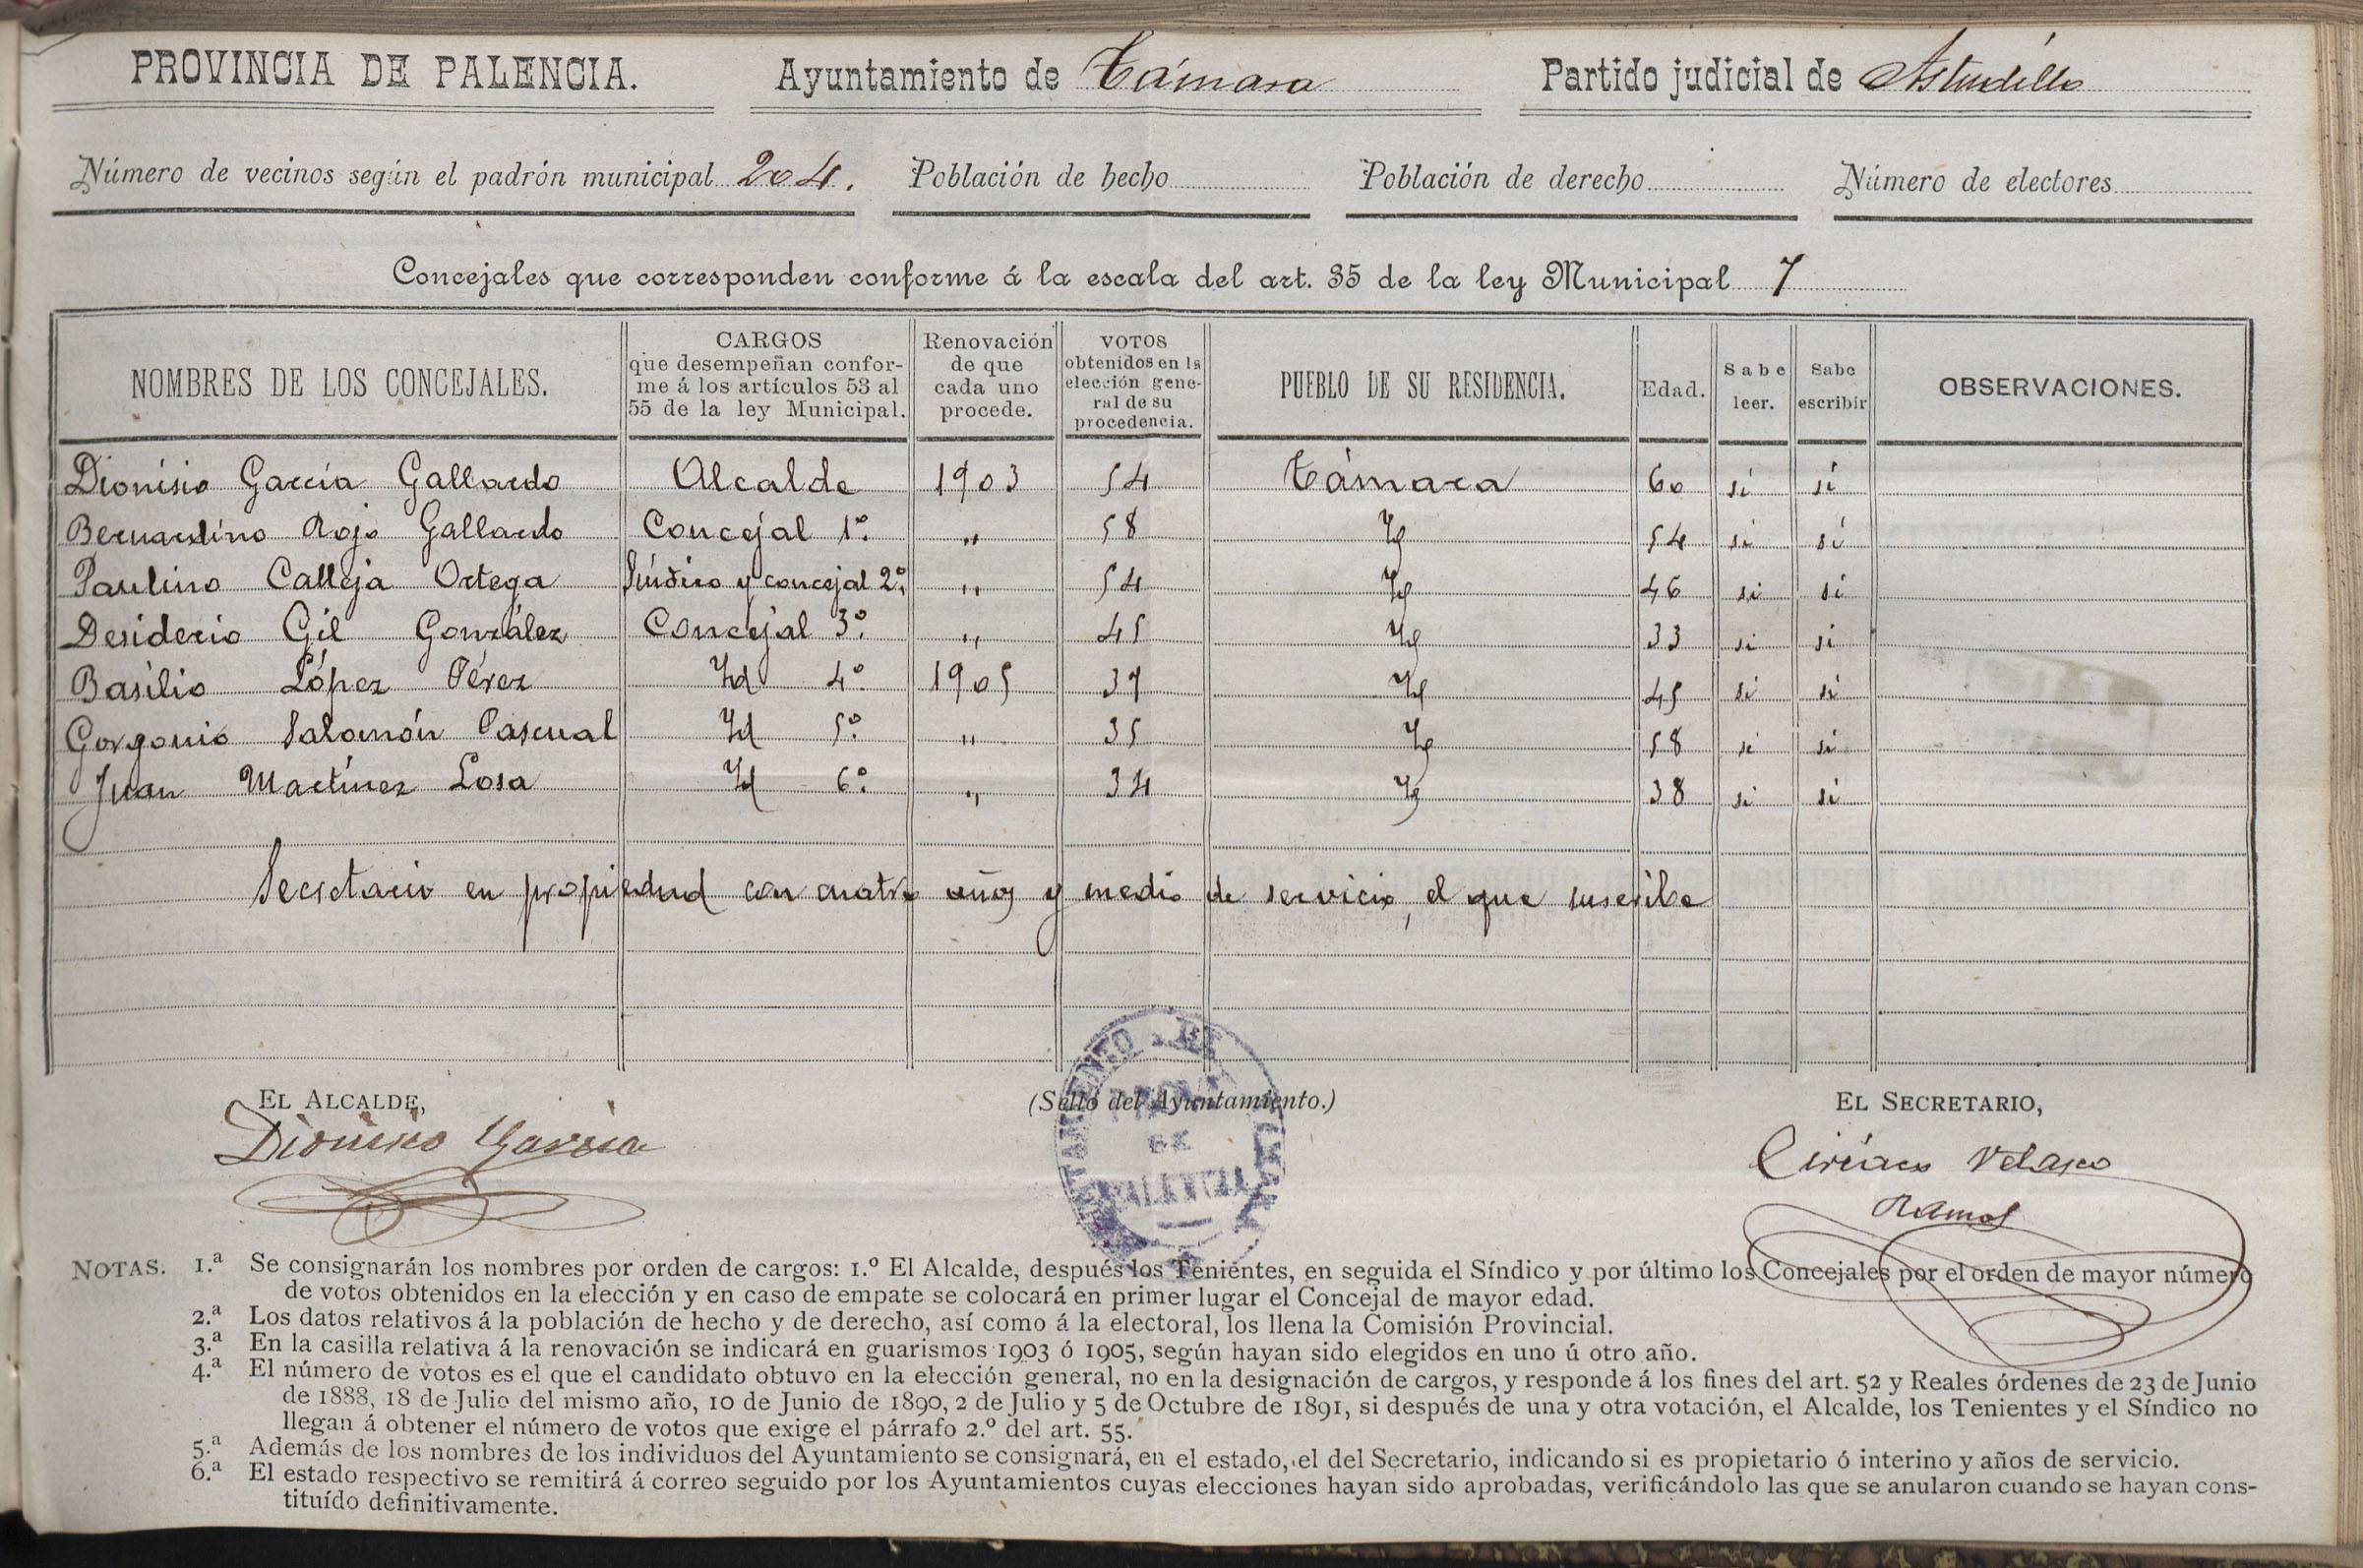 PROVINCIA DE PALENCIA. Ayuntamiento de Támara Partido judicial de Astudillo
Número de vecinos según el padrón municipal 204. Población de hecho Población de derecho Número de electores
Concejales que corresponden conforme á la escala del art. 35 de la ley Municipal 7
NOMBRES DE LOS CONCEJALES. CARGOS que desempeñan confor-me á los artículos 53 al 55 de la ley Municipal. Renovación de que cada uno procede. VOTOS obtenidos en la elección gene-ral de su procedencia. PUEBLO DE SU RESIDENCIA. Edad. Sabe leer. Sabe escribir OBSERVACIONES.
Dionisio García Gallardo Alcalde 1903 54 Támara 60 si si
Bernardino Rojo Gallardo Concejal 1º. „ 58 Id 54 si si
Paulino Calleja Ortega Síndico y concejal 2º. „ 54 Id 46 si si
Desiderio Gil González Concejal 3º. „ 45 Id 33 si si
Basilio López Pérez Id 4º. 1905 37 Id 45 si si
Gorgonio Salomón Pascual Id 5º. „ 35 Id 58 si si
Juan Martínez Losa Id 6º. „ 34 Id 38 si si
Secretario en propiedad con cuatro años y medio de servicio, el que suscribe
EL ALCALDE, (Sello del Ayuntamiento.) EL SECRETARIO,
Dionisio García
Ciriaco Velasco
Ramos
PALENCIA
NOTAS. 1.ª Se consignarán los nombres por orden de cargos: 1.º El Alcalde, después los Tenientes, en seguida el Síndico y por último los Concejales por el orden de mayor número
de votos obtenidos en la elección y en caso de empate se colocará en primer lugar el Concejal de mayor edad.
2.ª Los datos relativos á la población de hecho y de derecho, así como á la electoral, los llena la Comisión Provincial.
3.ª En la casilla relativa á la renovación se indicará en guarismos 1903 ó 1905, según hayan sido elegidos en uno ú otro año.
4.ª El número de votos es el que el candidato obtuvo en la elección general, no en la designación de cargos, y responde á los fines del art. 52 y Reales órdenes de 23 de Junio
de 1888, 18 de Julio del mismo año, 10 de Junio de 1890, 2 de Julio y 5 de Octubre de 1891, si después de una y otra votación, el Alcalde, los Tenientes y el Síndico no
llegan á obtener el número de votos que exige el párrafo 2.º del art. 55.
5.ª Además de los nombres de los individuos del Ayuntamiento se consignará, en el estado, el del Secretario, indicando si es propietario ó interino y años de servicio.
6.ª El estado respectivo se remitirá á correo seguido por los Ayuntamientos cuyas elecciones hayan sido aprobadas, verificándolo las que se anularon cuando se hayan cons-
tituído definitivamente.